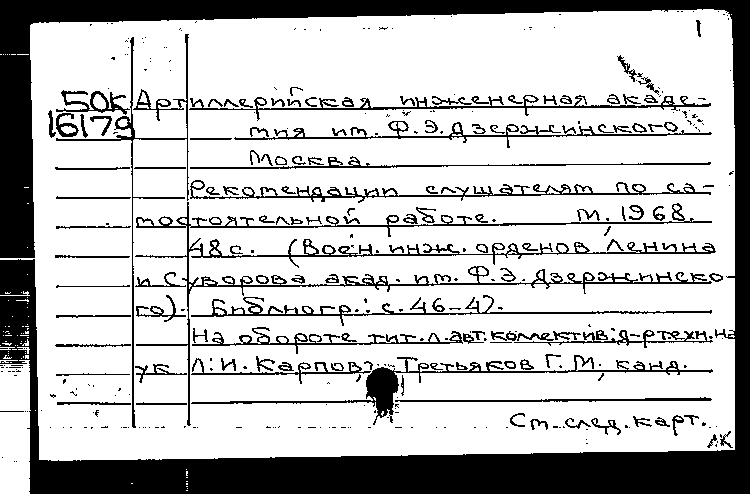 1
50К Артиллерийская инженерная акаде-
16179 мия им. Ф.Э.Дзержинского.
Москва.
Рекомендации слушателям по са-
мостоятельной работе. М., 1968.
48 с. (Воен. инж. орденов Ленина
и Суворова акад. им. Ф.Э.Дзержинско-
го). Библиогр.: с. 46-47.
На обороте тит.л.авт:коллектив:д-р техн.на
ук Л.И.Карпов, Третьяков Г.М, канд.
См.след.карт.
АК